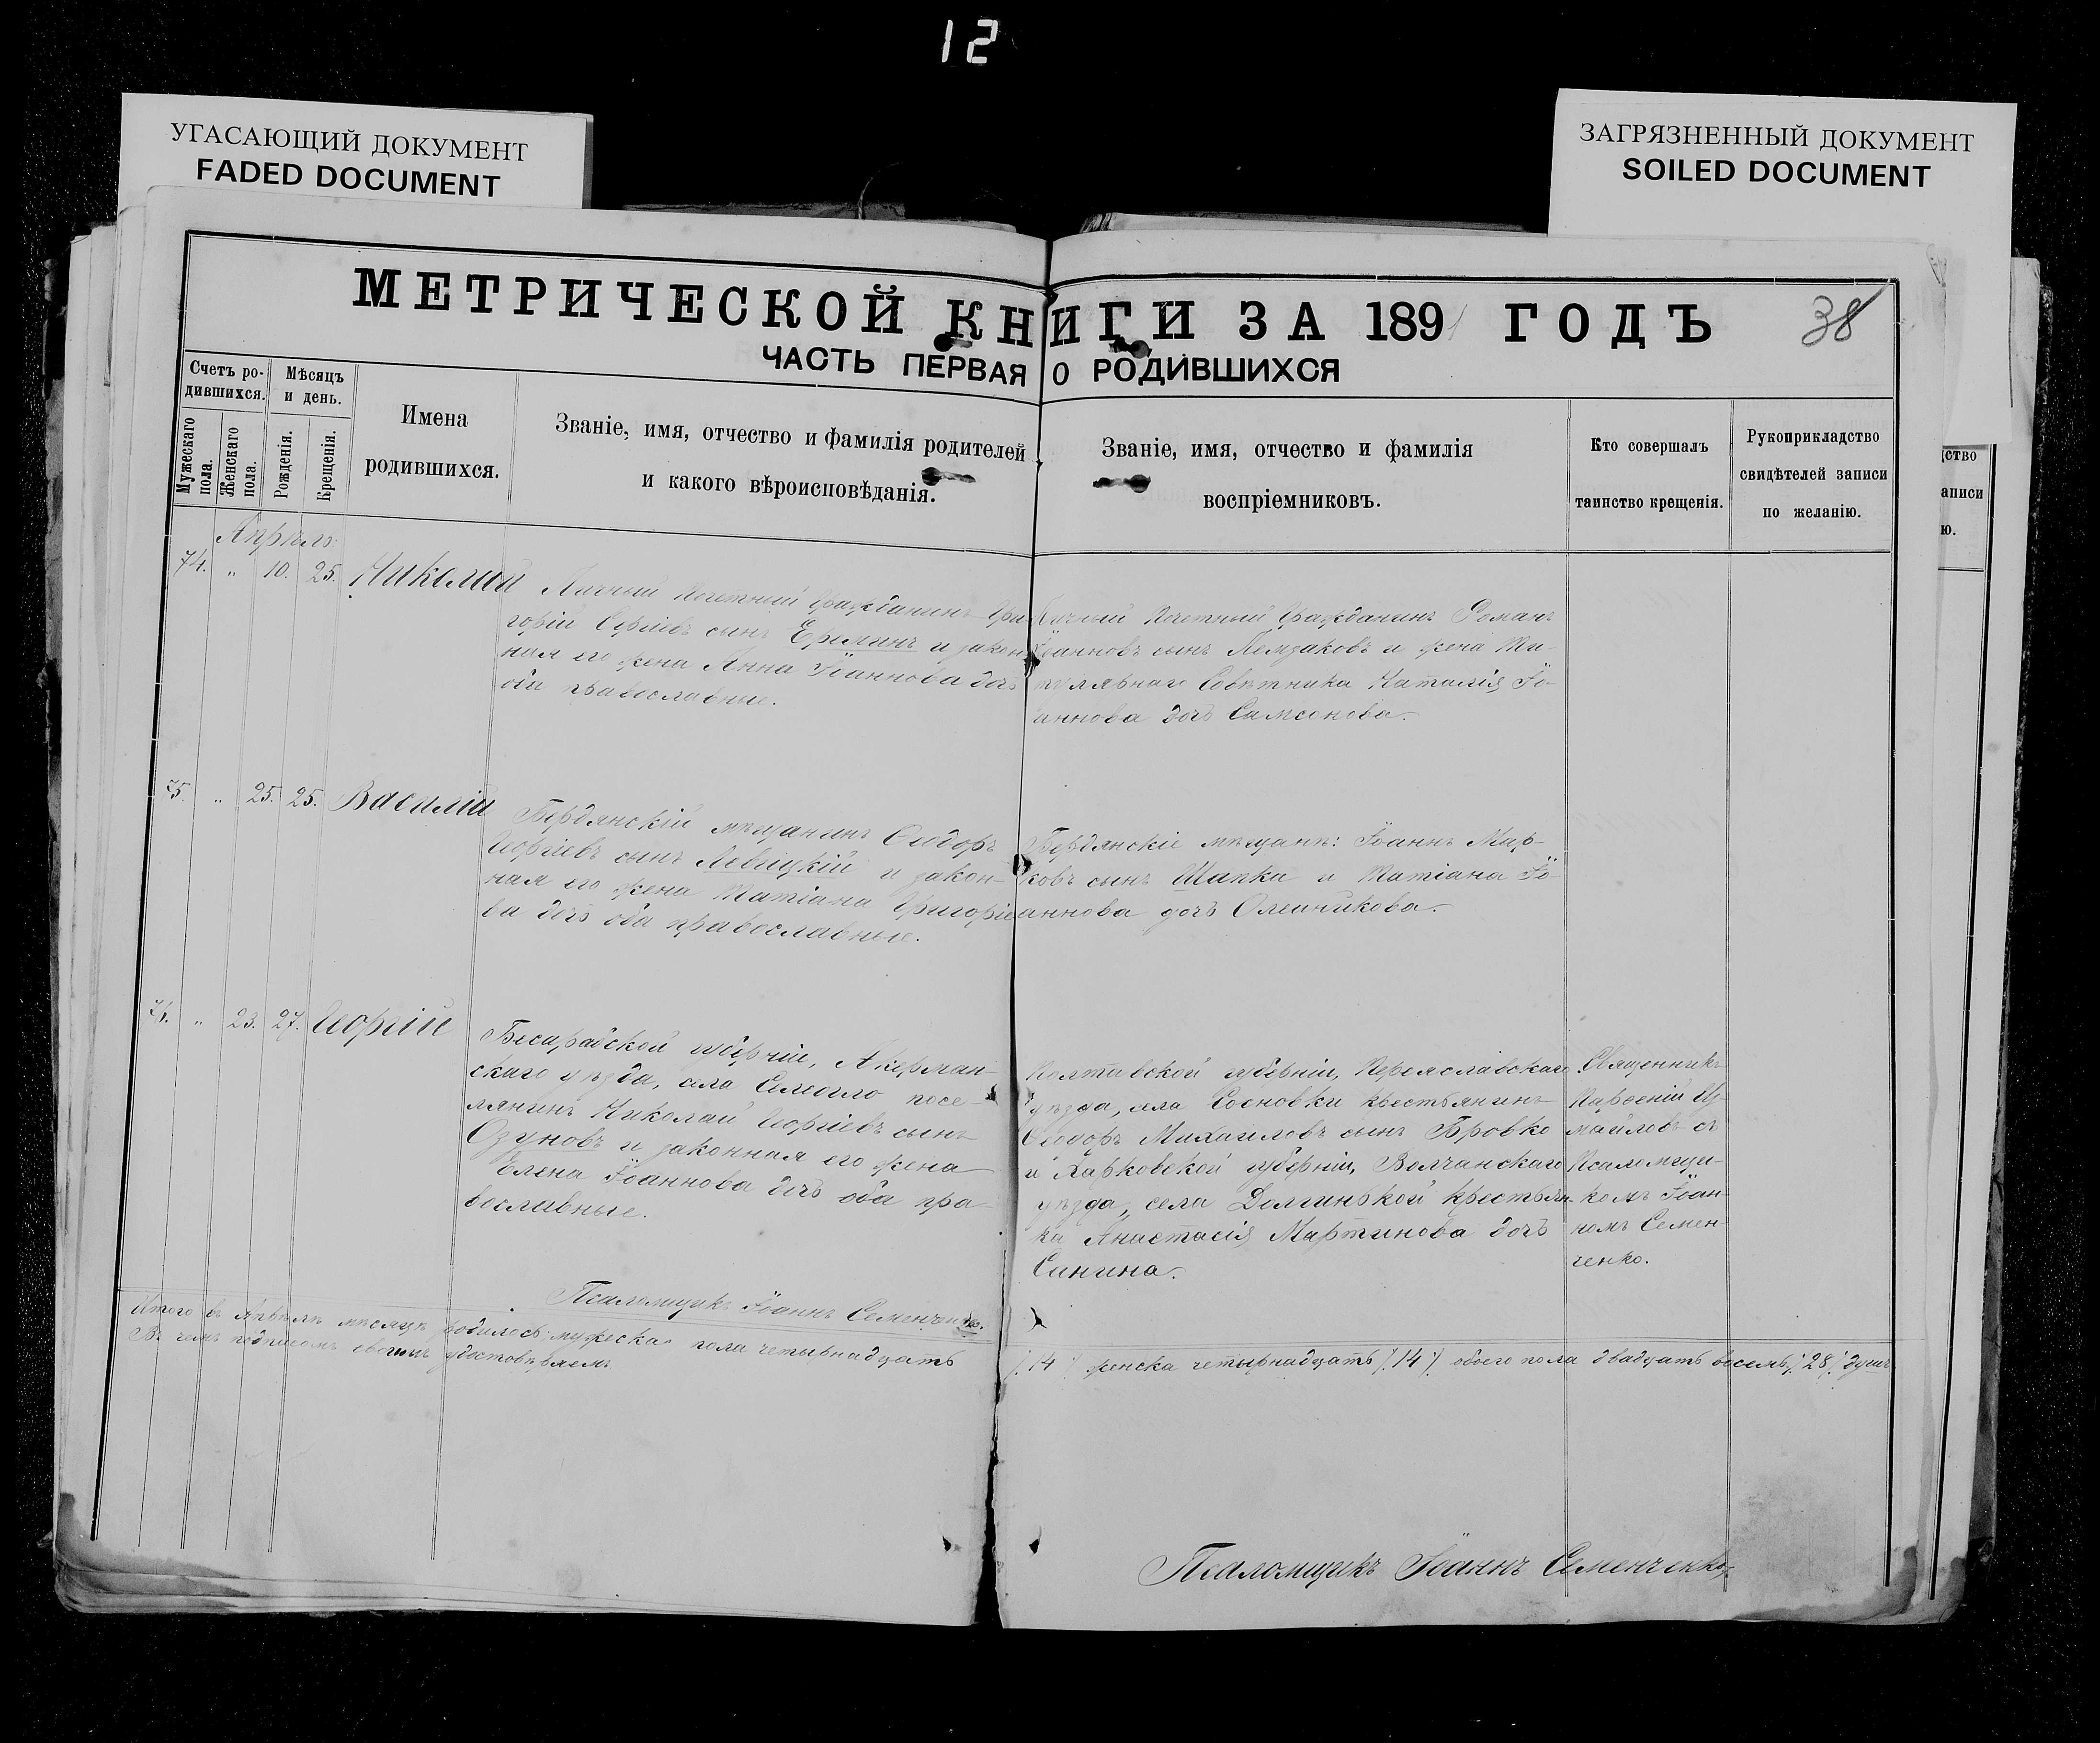 12
УГАСАЮЩИЙ ДОКУМЕНТ
FADED DOCUMENT
ЗАГРЯЗНЕННЫЙ ДОКУМЕНТ
SOILED DOCUMENT
МЕТРИЧЕСКОЙ КНИГИ ЗА 1891 ГОДЪ
38
ЧАСТЬ ПЕРВАЯ О РОДИВШИХСЯ
Счетъ ро-
дившихся.
Мѣсяцъ
и день.
Мужескаго
пола.
Женскаго
пола.
Рожденія.
Крещенія.
Имена
родившихся.
Званіе, имя, отчество и фамилія родителей
и какого вѣроисповѣданія.
Званіе, имя, отчество и фамилія
воспріемниковъ.
Кто совершалъ
таинство крещенія.
Рукоприкладство
свидѣтелей записи
по желанію.
ство
аписи
ю.
Апрѣль
74. " 10. 25. Николай
Личный Почетный Гражданинъ Гри-
горій Сергіевъ сынъ Ереминъ и закон-
ная его жена Анна Іоаннова дочь
оба православные.
Личный Почетный Гражданинъ Романъ
Іоанновъ сынъ Пемзаковъ и жена Ти-
тулярнаго Совѣтника Наталія Іо-
аннова дочь Самсонова.
75. " 25. 25. Василій
Бердянскій мѣщанинъ Ѳеодоръ
Георгіевъ сынъ Левицкій и закон-
ная его жена Татіана Григоріе
ва дочь оба православные.
Бердянскіе мѣщане: Іоаннъ Мар-
ковъ сынъ Шапка и Татіана Іо-
аннова дочь Олейникова.
" 23. 27. Георгій
Бесарабской губерніи, Акерман-
скаго уѣзда, села посе-
лянинъ Николай Георгіевъ сынъ
Озуновъ и законная его жена
Елена Іоаннова дочь оба пра-
вославные.
Полтавской губерніи, Переяславскаго
уѣзда, села Сосновки крестьянинъ
Ѳеодоръ Михаиловъ сынъ Бровко
и Харковской губерніи, Волчанскаго
уѣзда, села крестьян-
ка Анастасія Мартинова дочь
Санина.
Священникъ
Парѳеній Из-
майловъ съ
Псаломщи-
комъ Іоан-
номъ Семен-
ченко.
Псаломщикъ Іоаннъ Семенченко.
Итого въ Апрѣлѣ мѣсяцѣ родилось мужеска пола четырнадцать
/.14./ женска четырнадцать /.14./ обоего пола двадцать восемь /.28./ душъ
Въ чемъ подписомъ своимъ удостовѣряемъ
Псаломщикъ Іоаннъ Семенченко